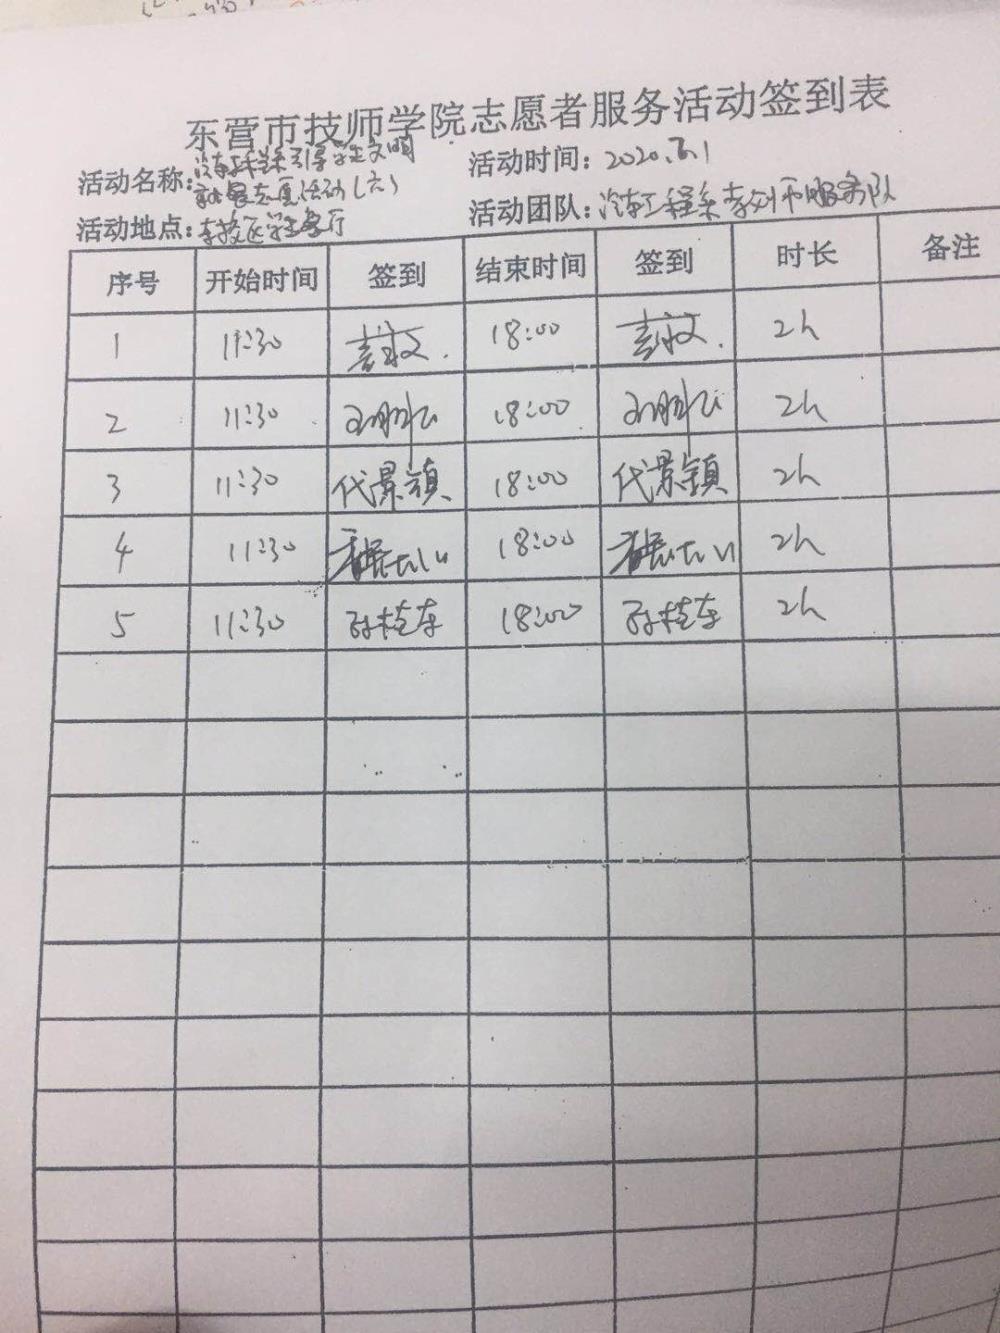 东营市技师学院志愿者服务活动签到表
活动名称: 汽车工程系引导学生文明
就餐志愿活动(六)
活动时间: 2020.6.1
活动地点: 东校区学生餐厅
活动团队: 汽车工程系 服务队
序号 开始时间 签到 结束时间 签到 时长 备注
1 11:30 18:00 2h
2 11:30 18:00 2h
3 11:30 代景镇 18:00 代景镇 2h
4 11:30 18:00 2h
5 11:30 孙桂东 18:00 孙桂东 2h